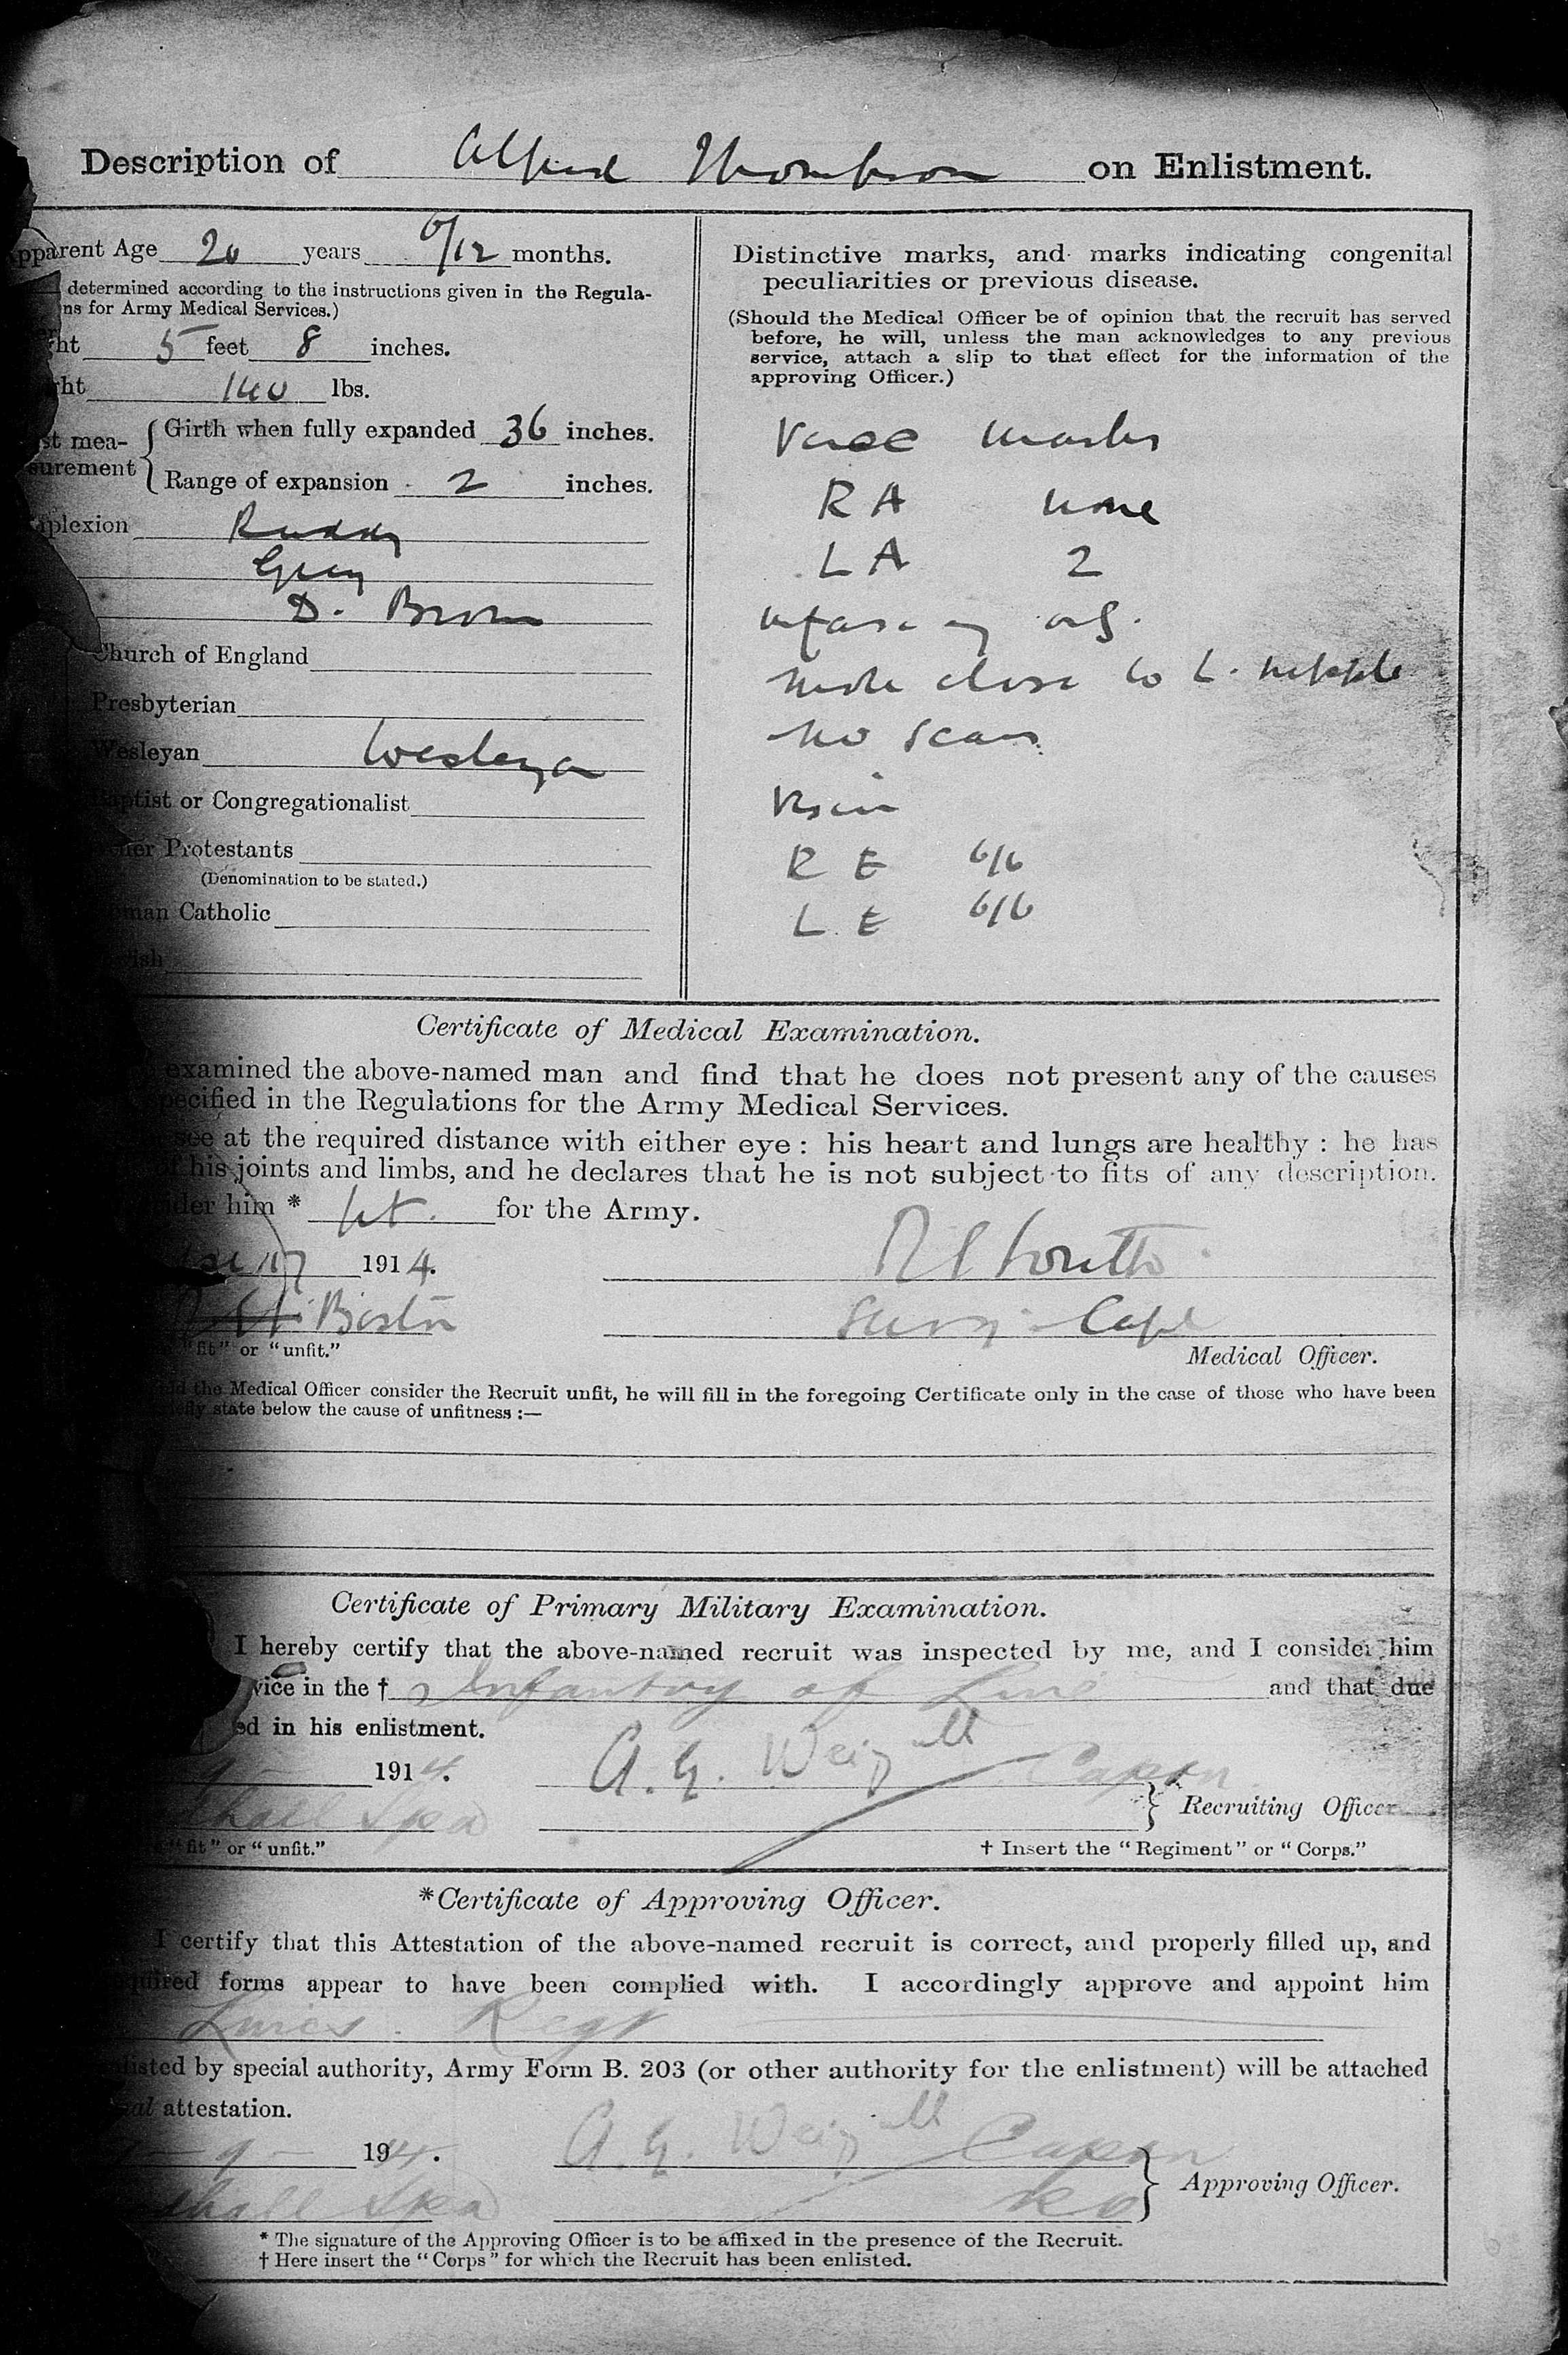 Description of Alfred Thompson on Enlistment.
pparent Age 20 years 6/12 months.
determined according to the instructions given in the Regula-
ns for Army Medical Services.)
ht 5 feet 8 inches.
ht 140 lbs.
st mea-
surement
Girth when fully expanded 36 inches.
Range of expansion 2 inches.
plexion Ruddy
Grey
D. Brown
Church of England
Presbyterian
Wesleyan Wesleyan
Baptist or Congregationalist
her Protestants
(Denomination to be stated.)
man Catholic
ish
Distinctive marks, and marks indicating congenital
peculiarities or previous disease.
(Should the Medical Officer be of opinion that the recruit has served
before, he will, unless the man acknowledges to any previous
service, attach a slip to that effect for the information of the
approving Officer.)
Vacc marks
R A none
L A 2
infancy
Mole close to L. nipple
No scars
Vision
R E 6/6
L. E 6/6
Certificate of Medical Examination.
examined the above-named man and find that he does not present any of the causes
pecified in the Regulations for the Army Medical Services.
see at the required distance with either eye: his heart and lungs are healthy: he has
of his joints and limbs, and he declares that he is not subject to fits of any description.
ider him * fit. for the Army.
17 1914.
Boston
Surg - Capt
"fit" or "unfit."
Medical Officer.
ld the Medical Officer consider the Recruit unfit, he will fill in the foregoing Certificate only in the case of those who have been
iefly state below the cause of unfitness :—
Certificate of Primary Military Examination.
I hereby certify that the above-named recruit was inspected by me, and I consider him
vice in the † Infantry of Line and that due
ed in his enlistment.
9 1914. A. G. Weigall Captn
Recruiting Officer
dhall Spa
"fit" or "unfit."
† Insert the "Regiment" or "Corps."
*Certificate of Approving Officer.
I certify that this Attestation of the above-named recruit is correct, and properly filled up, and
quired forms appear to have been complied with. I accordingly approve and appoint him
Lincs. Regt
nlisted by special authority, Army Form B. 203 (or other authority for the enlistment) will be attached
nal attestation.
- 9 - 1914. A. G. Weigall Captn
Approving Officer.
dhall Spa RO
* The signature of the Approving Officer is to be affixed in the presence of the Recruit.
† Here insert the "Corps" for which the Recruit has been enlisted.